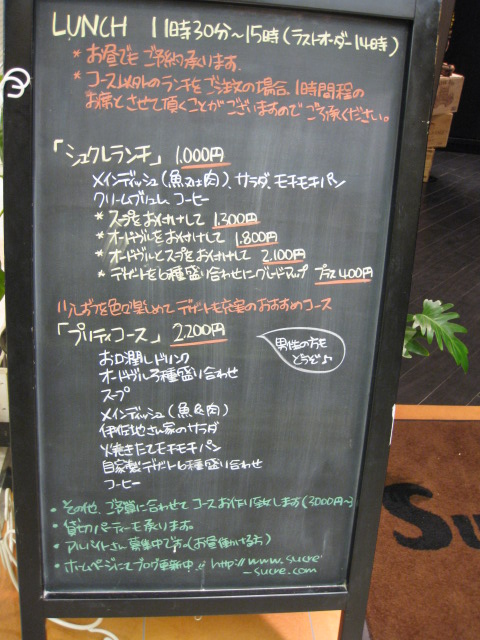 LUNCH 11時30分〜15時(ラストオーダー14時)
* お昼でもご予約承ります.
* コース以外のランチをご注文の場合、1時間程の
お席とさせて頂くことがございますのでご了承ください。
「シュクレランチ」 1,000円
メインディッシュ(魚又は肉)、サラダ、モチモチパン
クリームブリュレ、コーヒー
* スープをお付けして 1,300円
* オードヴルをお付けして 1,800円
* オードヴルとスープをお付けして 2,100円
* デザートを6種盛り合わせにグレードアップ プラス400円
少しずつ色々楽しめてデザートも充実のおすすめコース
「プリティコース」 2,200円
男性の方も
どうぞ♪
お口潤しドリンク
オードヴル3種盛り合わせ
スープ
メインディッシュ(魚&肉)
伊佐地さん家のサラダ
焼きたてモチモチパン
自家製デザート6種盛り合わせ
コーヒー
・その他、ご予算に合わせてコースお作り致します(3000円〜)
・貸切パーティーも承ります。
・アルバイトさん募集中です(お昼働ける方)
・ホームページにてブログ更新中!! http://www.sucre
-sucre.com
Su